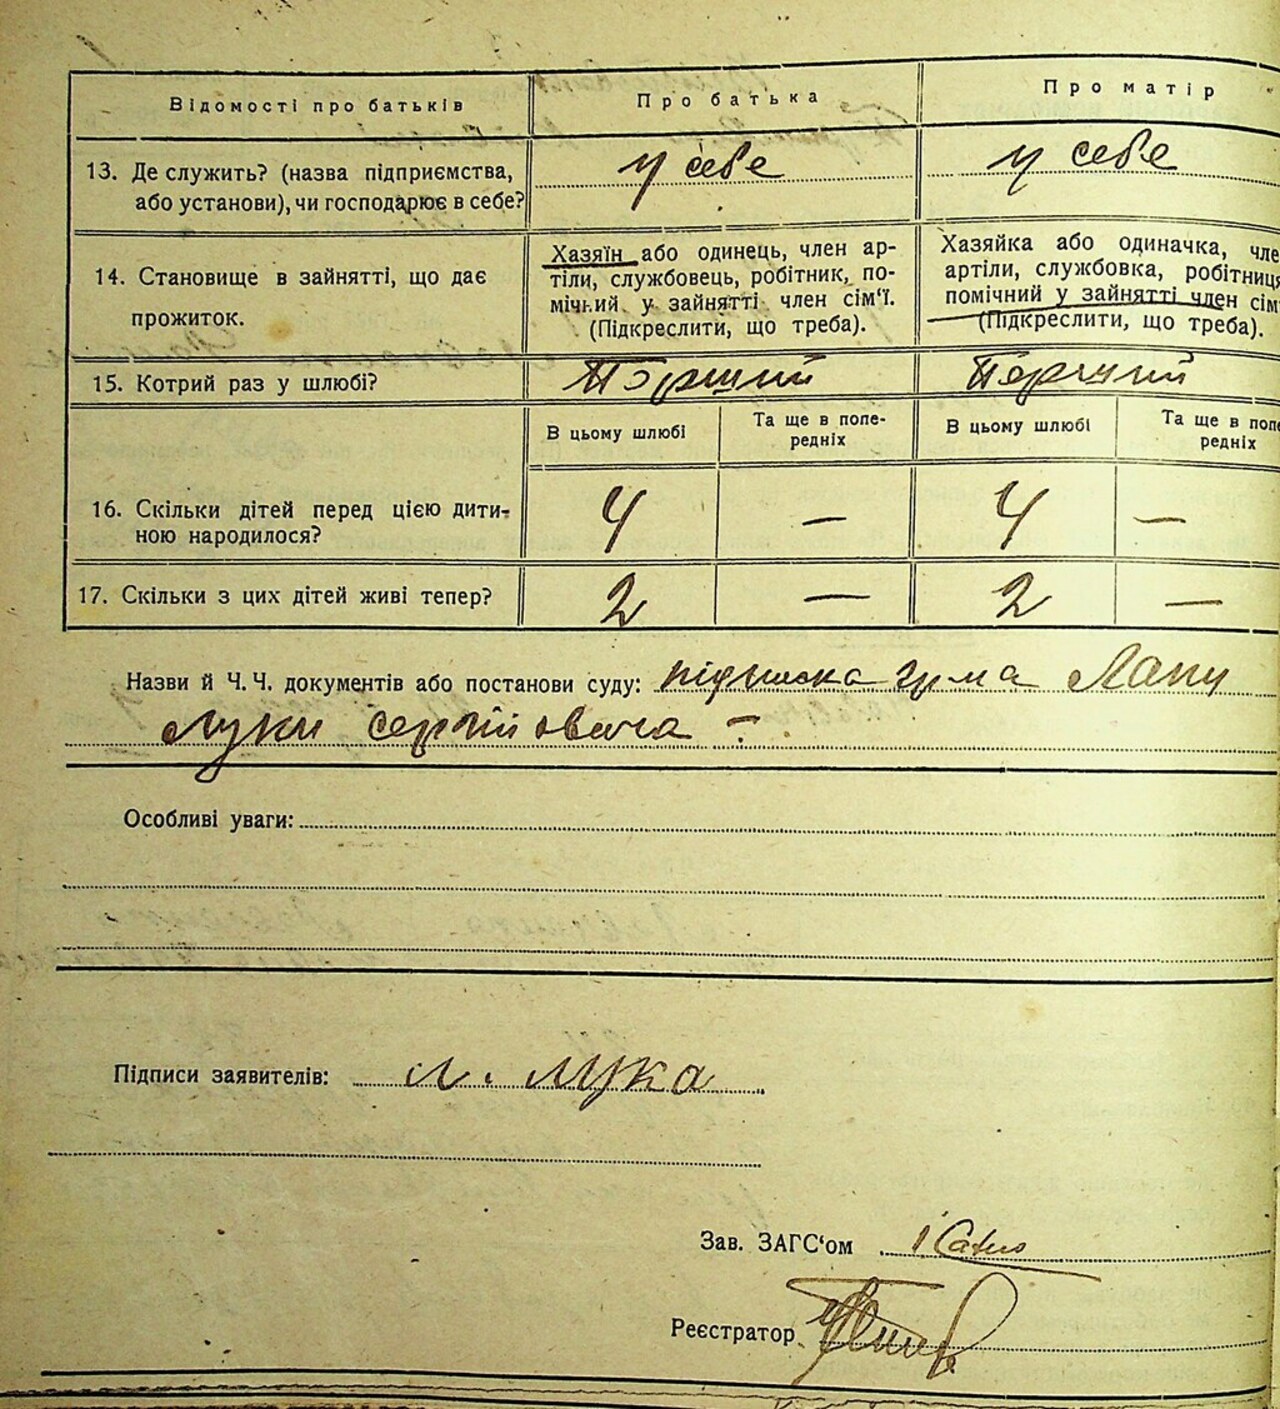 Відомості про батьків
Про батька
Про матір
13. Де служить? (назва підприємства,
або установи), чи господарює в себе?
у себе
у себе
14. Становище в зайнятті, що дає
прожиток.
Хазяїн або одинець, член ар-
тіли, службовець, робітник, по-
мічний у зайнятті член сім'ї.
(Підкреслити, що треба).
Хазяйка або одиначка, чле
артіли, службовка, робітниця
помічний у зайнятті член сім'
(Підкреслити, що треба).
15. Котрий раз у шлюбі?
Перший
Перший
В цьому шлюбі
Та ще в попе-
редніх
В цьому шлюбі
Та ще в попе
редніх
16. Скільки дітей перед цією дити-
ною народилося?
4
—
4
—
17. Скільки з цих дітей живі тепер?
2
—
2
—
Назви й Ч. Ч. документів або постанови суду: підписка гр-на
Луки Сергійовича —
Особливі уваги:
Підписи заявителів: Л. Лука
Зав. ЗАГС'ом
Реєстратор